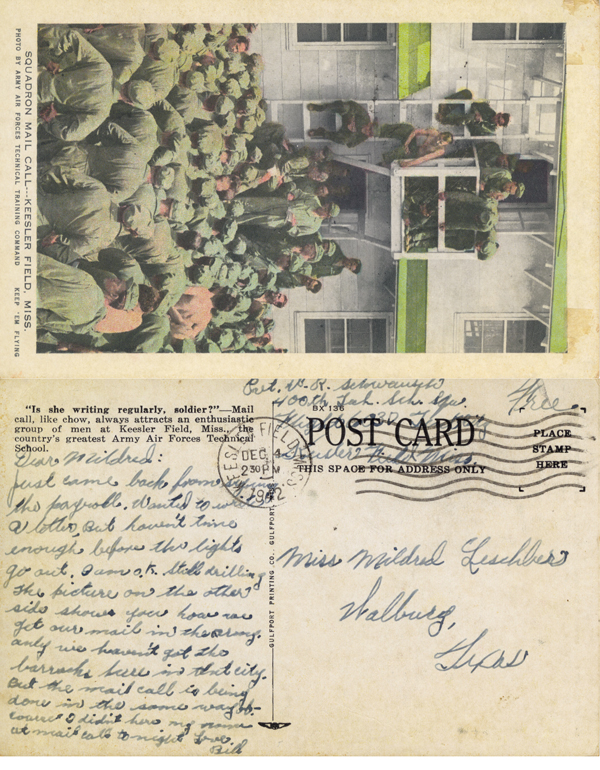 SQUADRON MAIL CALL---KEESLER FIELD, MISS.
PHOTO BY ARMY AIR FORCES TECHNICAL TRAINING COMMAND KEEP 'EM FLYING
"Is she writing regularly, soldier?"—Mail
call, like chow, always attracts an enthusiastic
group of men at Keesler Field, Miss., the
country's greatest Army Air Forces Technical
School.
Pvt. W. R. Schwausch
400th Tech. Sch. Sq.
Free
BX 136
POST CARD
THIS SPACE FOR ADDRESS ONLY
PLACE
STAMP
HERE
KEESLER FIELD MISS
DEC 4
230 PM
1942
Dear Mildred:
just came back from signing
the payroll. Wanted to write
a letter, But havent time
enough before the lights
go out. I am O.K. Still drilling
The picture on the other
side shows you how we
get our mail in the army.
only we haven't got the
barracks here in tent city.
But the mail call is being
done in the same way. of-
course I didn't here my name
at mail call tonight Love
Bill
GULFPORT PRINTING CO. GULFPORT,
Miss Mildred Leschber
Walburg,
Texas